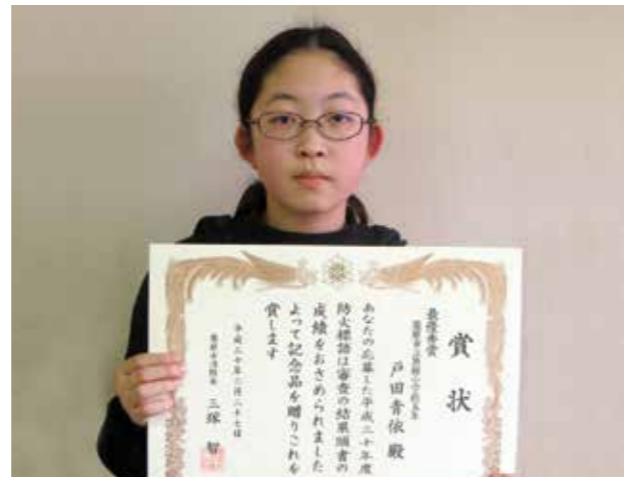 賞状
最優秀賞
戸田青依殿
あなたの応募した平成二十年度
防火標語は審査の結果頭書の
成績をおさめられました
よって記念品を贈りこれを
賞します
平成二十年二月二十七日
三塚